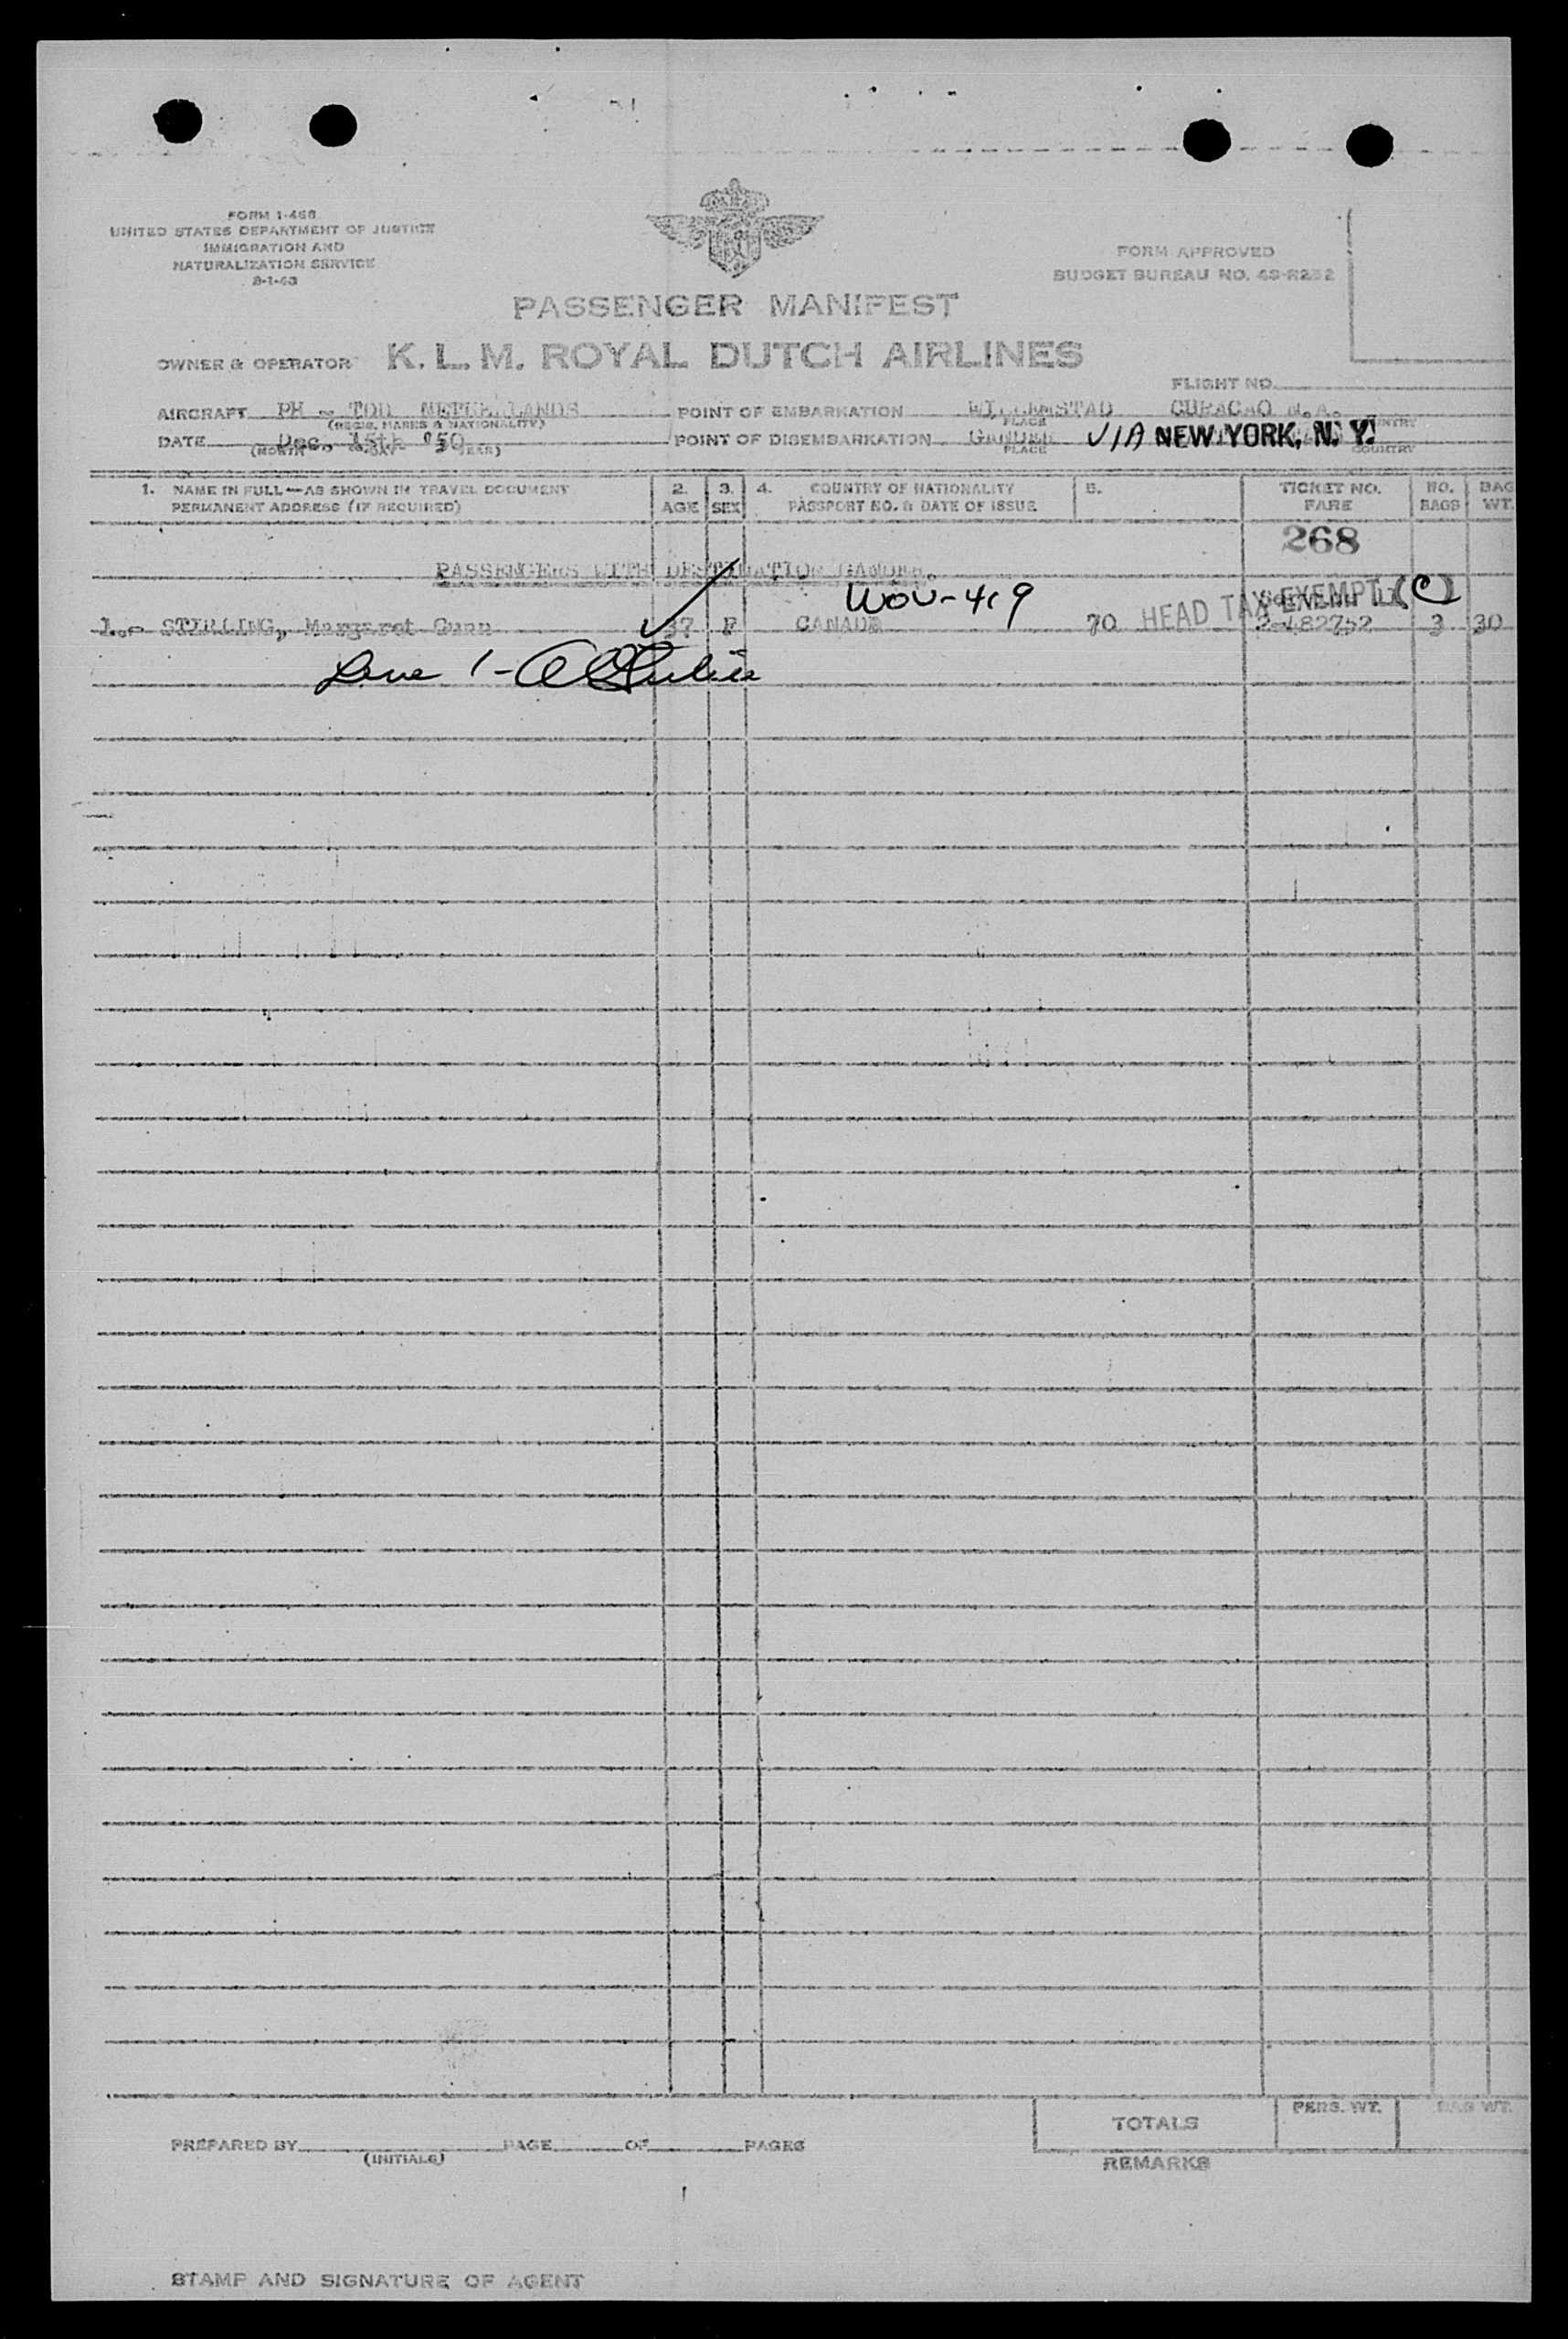 FORM I-466
UNITED STATES DEPARTMENT OF JUSTICE
IMMIGRATION AND
NATURALIZATION SERVICE
FORM APPROVED
BUDGET BUREAU NO. 43-R232
PASSENGER MANIFEST
OWNER & OPERATOR K. L. M. ROYAL DUTCH AIRLINES
FLIGHT NO.
AIRCRAFT PH - TDD NETHERLANDS POINT OF EMBARKATION WILLEMSTAD CURACAO N.A.
(REGIS. MARKS & NATIONALITY) PLACE COUNTRY
DATE Dec. 15th '50 POINT OF DISEMBARKATION GANDER VIA NEW YORK, N. Y.
(MONTH DAY YEAR) PLACE COUNTRY
1. NAME IN FULL—AS SHOWN IN TRAVEL DOCUMENT 2. 3. 4. COUNTRY OF NATIONALITY 5. TICKET NO. NO. BAG
PERMANENT ADDRESS (IF REQUIRED) AGE SEX PASSPORT NO. & DATE OF ISSUE FARE BAGS WT.
268
PASSENGERS WITH DESTINATION GANDER.
WOU-419 HEAD TAX EXEMPT (C)
1.- STIRLING, Margaret Gunn 37 F CANADA 70 2-482752 3 30
Line 1-
TOTALS PERS. WT. BAG WT.
PREPARED BY PAGE OF PAGES
(INITIALS)
REMARKS
STAMP AND SIGNATURE OF AGENT